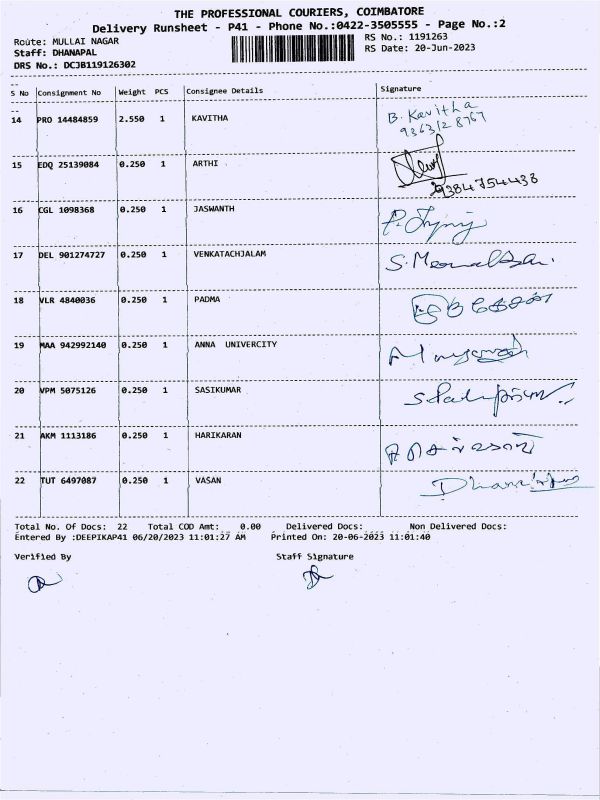 THE PROFESSIONAL COURIERS, COIMBATORE
Delivery Runsheet - P41 - Phone No.:0422-3505555 - Page No.:2
Route: MULLAI NAGAR RS No.: 1191263
Staff: DHANAPAL RS Date: 20-Jun-2023
DRS No.: DCJB119126302
S No Consignment No Weight PCS Consignee Details Signature
14 PRO 14484859 2.550 1 KAVITHA B. Kavitha
9363128767
15 EDQ 25139084 0.250 1 ARTHI
9384754438
16 CGL 1098368 0.250 1 JASWANTH
17 DEL 901274727 0.250 1 VENKATACHJALAM
18 VLR 4840036 0.250 1 PADMA
19 MAA 942992140 0.250 1 ANNA UNIVERCITY
20 VPM 5075126 0.250 1 SASIKUMAR
21 AKM 1113186 0.250 1 HARIKARAN
22 TUT 6497087 0.250 1 VASAN
Total No. Of Docs: 22 Total COD Amt: 0.00 Delivered Docs: Non Delivered Docs:
Entered By :DEEPIKAP41 06/20/2023 11:01:27 AM Printed On: 20-06-2023 11:01:40
Verified By Staff Signature